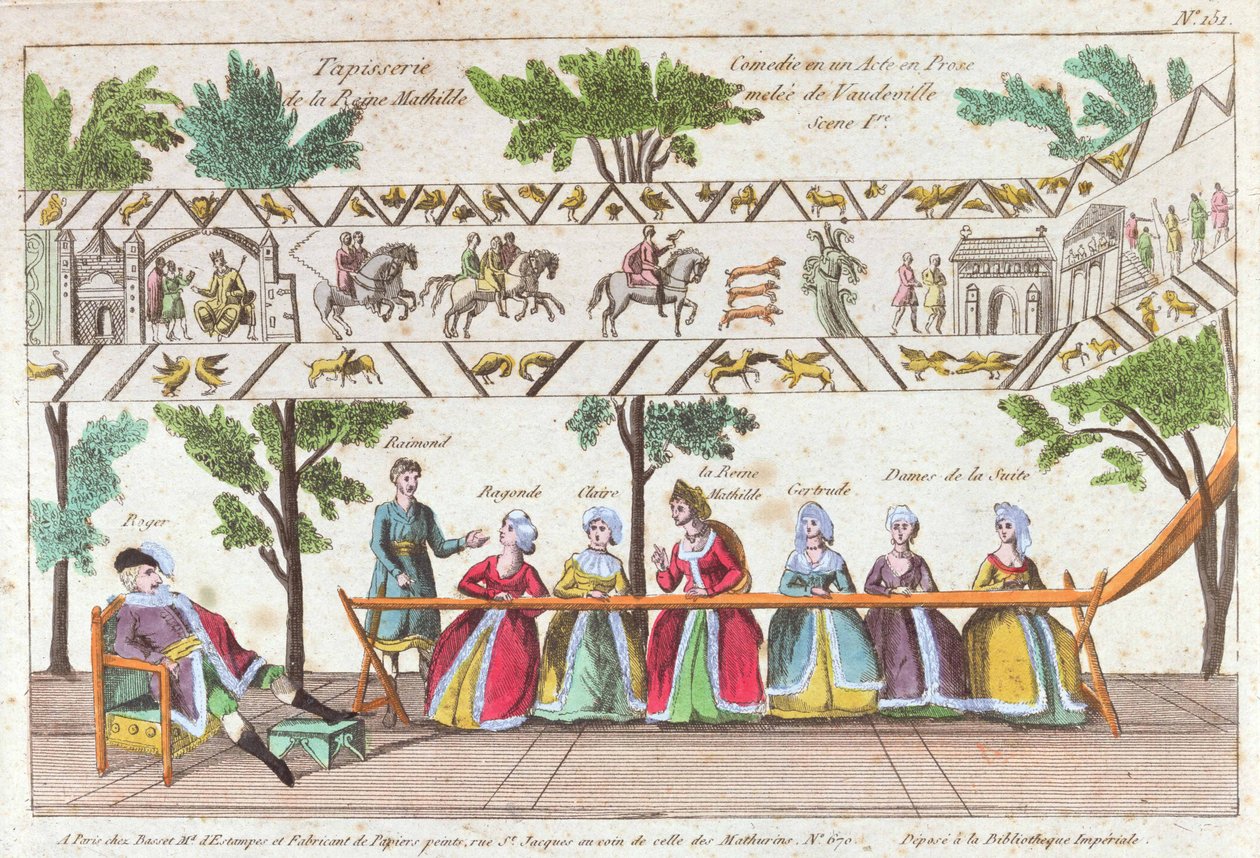 Nº. 151.
Tapisserie
de la Reine Mathilde
Comedie en un Acte en Prose
melée de Vaudeville
Scene I.re
Raimond
Ragonde
Claire
la Reine
Mathilde
Gertrude
Dames de la Suite
Roger
A Paris chez Basset Md. d'Estampes et Fabricant de Papiers peints, rue St. Jacques au coin de celle des Mathurins. Nº. 670. Déposé à la Bibliotheque Impériale.